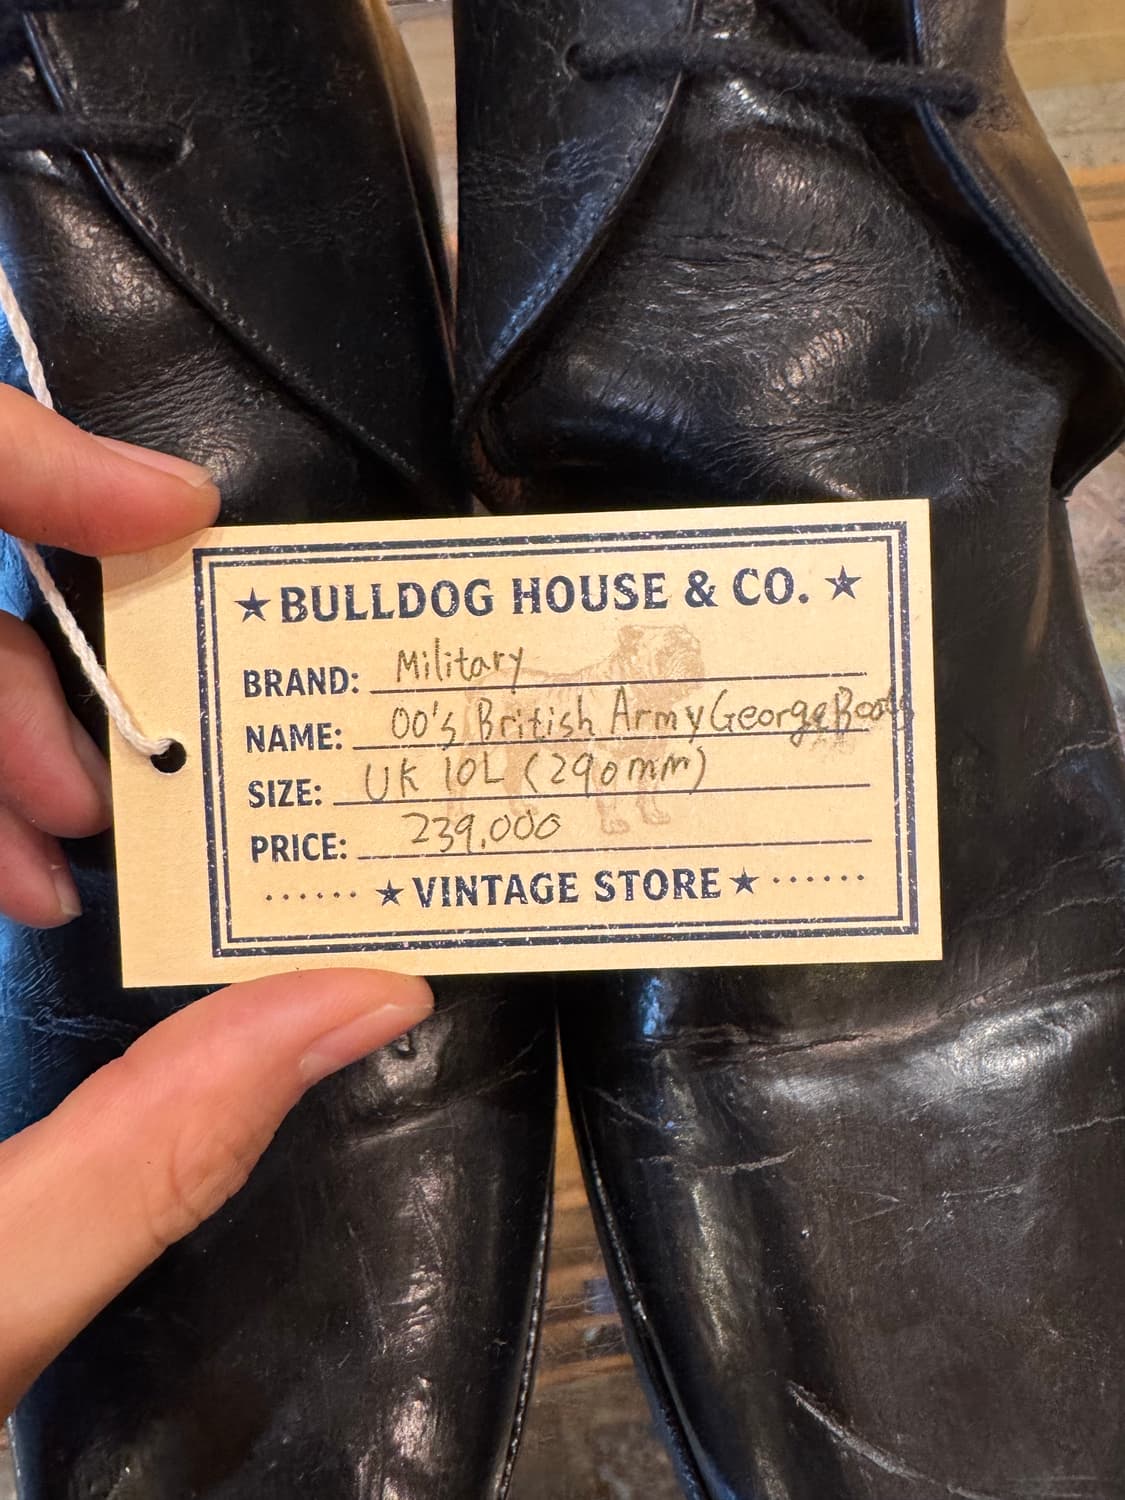 ★BULLDOG HOUSE & CO. ★
BRAND: Military
NAME: 00's British Army George Boots
SIZE: UK 10L (290mm)
PRICE: 239,000
······ ★VINTAGE STORE★ ······